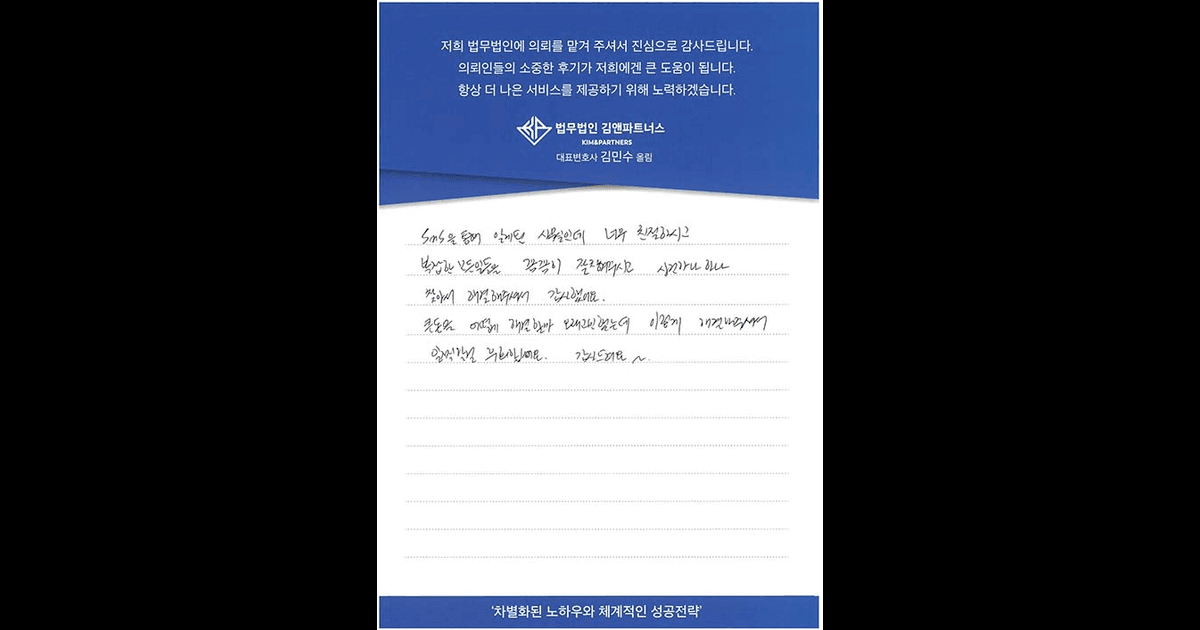 저희 법무법인에 의뢰를 맡겨 주셔서 진심으로 감사드립니다.
의뢰인들의 소중한 후기가 저희에겐 큰 도움이 됩니다.
항상 더 나은 서비스를 제공하기 위해 노력하겠습니다.
법무법인 김앤파트너스
KIM&PARTNERS
대표변호사 김민수 올림
SNS을 통해 알게된 사무실인데 너무 친절하시고
복잡한 모든일들을 꼼꼼이 잘 해주시고 사건하나 하나
찾아서 해결해주셔서 감사했어요.
큰돈을 어떻게 해결할까 오래고민했는데 이렇게 해결해주셔서
감사드려요~.
'차별화된 노하우와 체계적인 성공전략'